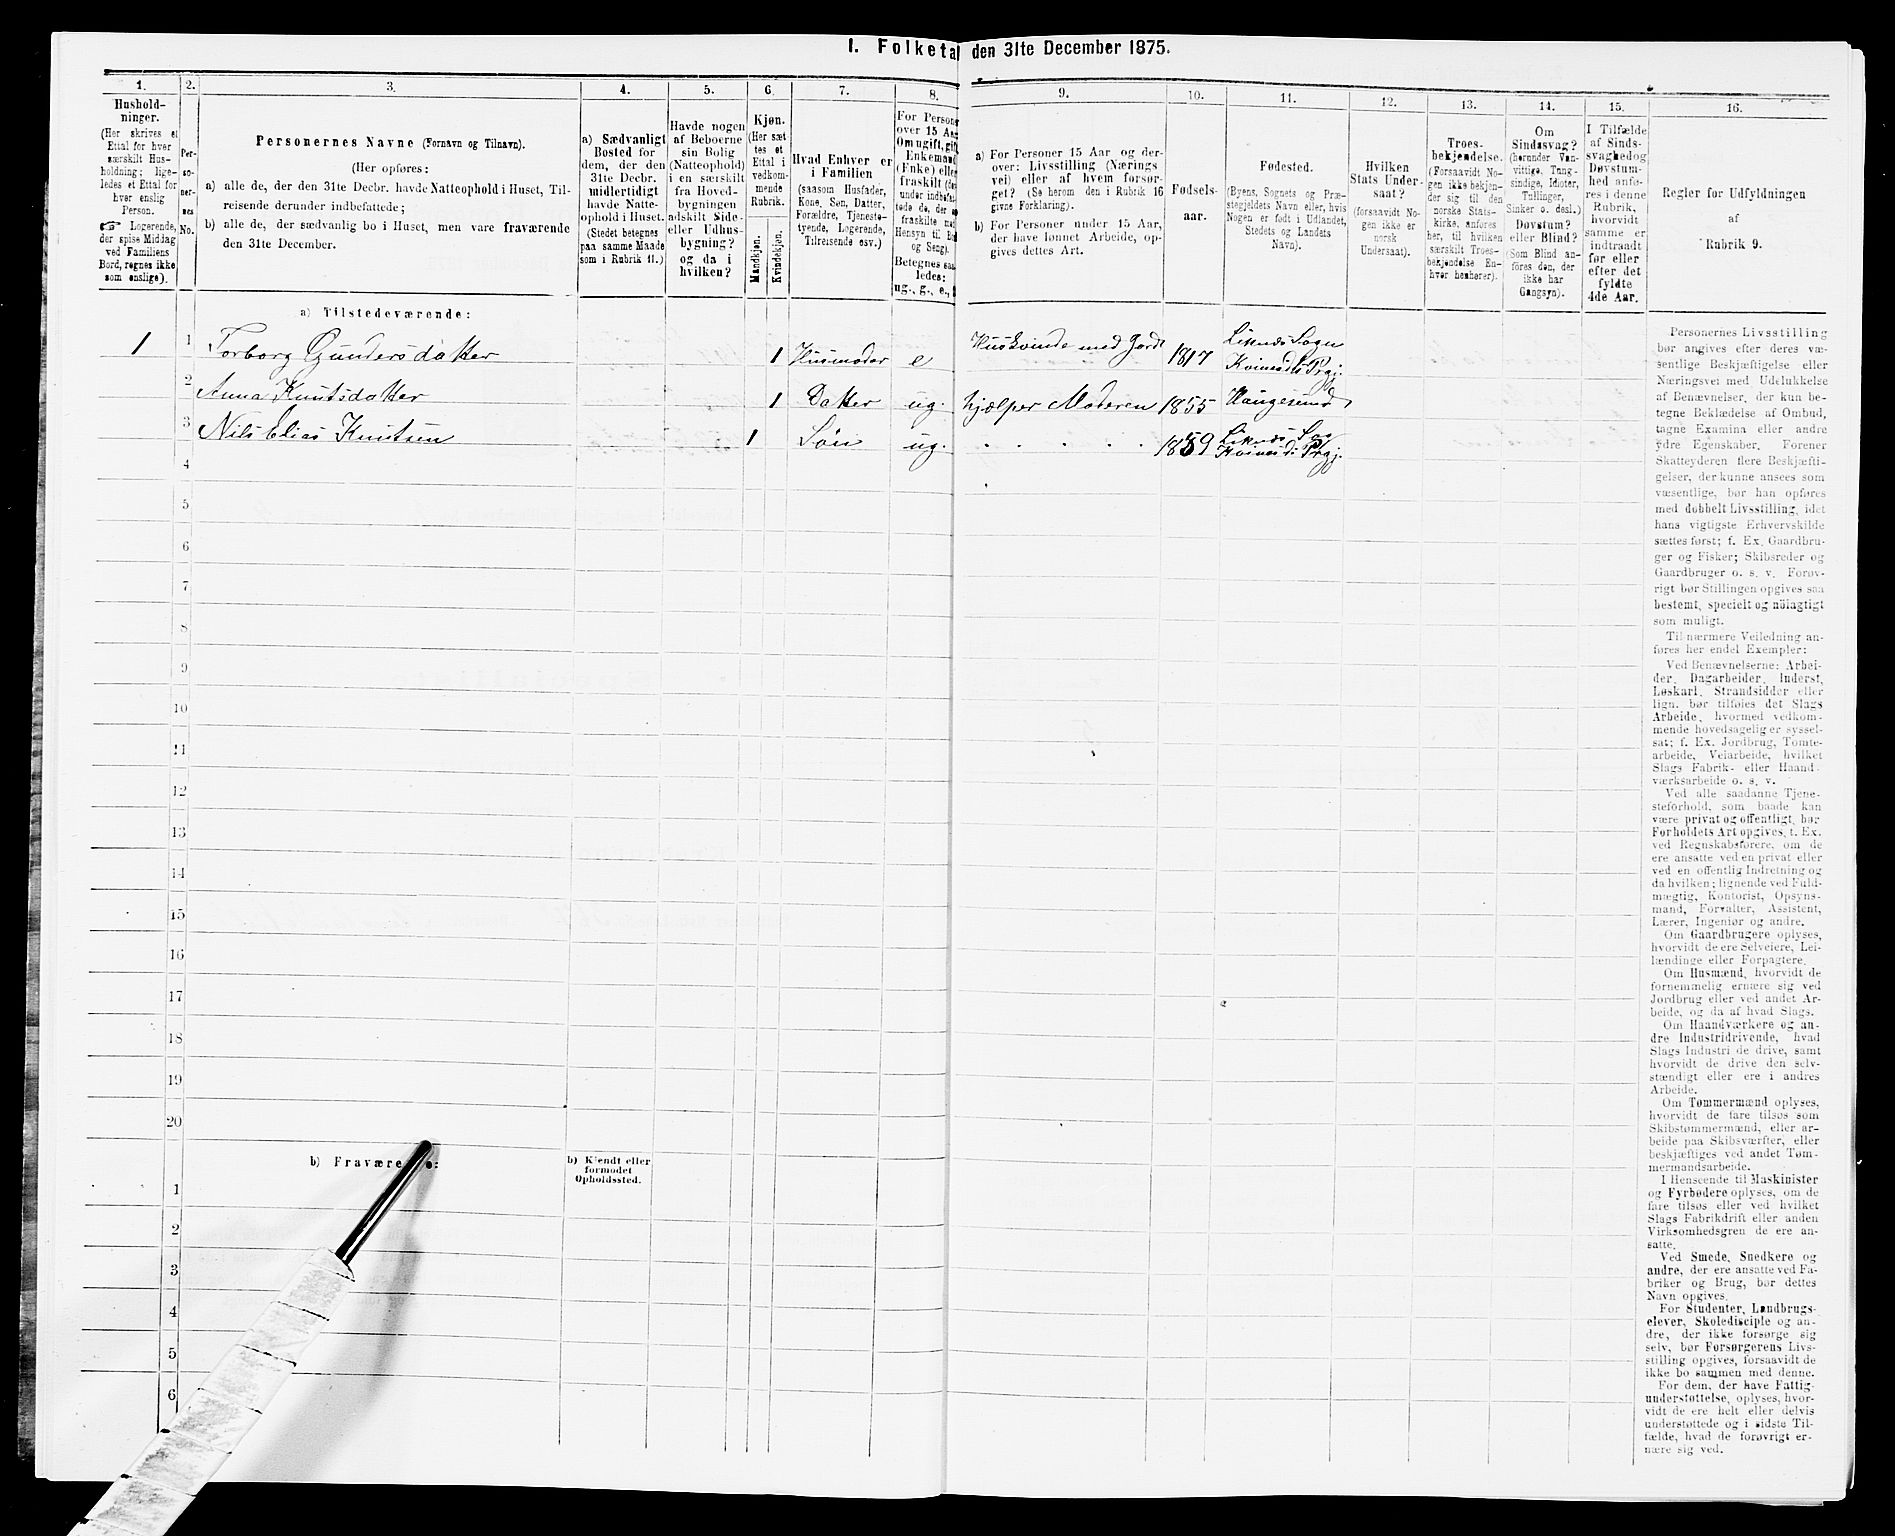 I. Folketal den 31te December 1875.
1.
Hushold-
ninger.
(Her skrives et
Ettal for hver
særskilt Hus-
holdning; lige-
ledes et Ettal for
hver enslig
Person.
☞ Logerende,
der spise Middag
ved Familiens
Bord, regnes ikke
som enslige).
2.
Per-
so-
ner-
nes
No.
3.
Personernes Navne (Fornavn og Tilnavn).
(Her opføres:
a) alle de, der den 31te Decbr. havde Natteophold i Huset, Til-
reisende derunder indbefattede;
b) alle de, der sædvanlig bo i Huset, men vare fraværende
den 31te December.
4.
a) Sædvanligt
Bosted for
dem, der den
31te Decbr.
midlertidigt
havde Natte-
ophold i Huset.
(Stedet betegnes
paa samme Maade
som i Rubrik 11.)
5.
Havde nogen
af Beboerne
sin Bolig
(Natteophold)
i en særskilt
fra Hoved-
bygningen
adskilt Side-
eller Udhus-
bygning?
og da i
hvilken?
6.
Kjøn.
(Her sæt-
tes et
Ettal i
vedkom-
mende
Rubrik.
Mandkjøn.
Kvindekjøn.
7.
Hvad Enhver er
i Familien
(saasom Husfader,
Kone, Søn, Datter,
Forældre, Tjeneste-
tyende, Logerende,
Tilreisende osv.)
8.
For Person
over 15 Aa
Om ugift, gif
Enkemand
(Enke) elle
fraskilt
under indbefat
tede de, der
fraskilte
Hensyn til Bo
og Seng).
Betegnes saa-
ledes:
ug., g., e.,
9.
a) For Personer 15 Aar og der-
over: Livsstilling (Nærings-
vei) eller af hvem forsør-
get? (Se herom den i Rubrik 16
givne Forklaring).
b) For Personer under 15 Aar,
der have lønnet Arbeide, op-
gives dettes Art.
10.
Fødsels-
aar.
11.
Fødested.
(Byens, Sognets og Præ-
stegjeldets Navn eller, hvis
Nogen er født i Udlandet,
Stedets og Landets
Navn).
12.
Hvilken
Stats Under-
saat?
(forsaavidt No-
gen ikke er
norsk
Undersaat).
13.
Troes-
bekjendelse.
(Forsaavidt No-
gen ikke bekjen-
der sig til den
norske Stats-
kirke, anføres
her, til hvilken
Troes-
bekjendelse En-
hver henhører).
14.
Om
Sindssvag?
(herunder Van-
vittige, Tung-
sindige, Idioter,
Tullinger,
Sinker o. desl.)
Døvstum?
eller Blind?
(Som Blind an-
føres den, der
ikke har
Gangsyn).
15.
I Tilfælde
af Sinds-
svaghed og
Døvstum-
hed anfø-
res i denne
Rubrik,
hvorvidt
samme er
indtraadt
før eller
efter det
fyldte
4de Aar.
16.
Regler for Udfyldningen
af
Rubrik 9.
a) Tilstedeværende:
1 1 Torborg Gundersdatter 1 Husmoder e Huskvinde med Jord 1817 Liknes Sogn
Kvinesd: Prgj.
2 Anna Knutsdatter 1 Datter ug. hjælper Moderen 1855 Haugesund
3 Nils Elias Knutsen 1 Søn ug. " " " " 1859 Liknes Sog
Kvinesd: Prgj.
4
5
6
7
8
9
10
11
12
13
14
15
16
17
18
19
20
b) Fravære e:
b) Kjendt eller
formodet
Opholdssted.
1
2
3
4
5
6
Personernes Livsstilling
bør angives efter deres væ-
sentlige Beskjæftigelse eller
Næringsvei med Udelukkelse
af Benævnelser, der kun be-
tegne Beklædelse af Ombud,
tagne Examina eller andre
ydre Egenskaber. Forener
Skatteyderen flere Beskjæfti-
gelser, der kunne ansees som
væsentlige, bør han opføres
med dobbelt Livsstilling, idet
hans vigtigste Erhvervskilde
sættes først; f. Ex. Gaardbru-
ger og Fisker; Skibsreder og
Gaardbruger o. s. v. Forøv-
rigt bør Stillingen opgives saa
bestemt, specielt og nøiagtigt
som muligt.
Til nærmere Veiledning an-
føres her endel Exempler:
Ved Benævnelserne: Arbei-
der, Dagarbeider, Inderst,
Løskarl, Strandsidder eller
lign. bør tilføies det Slags
Arbeide, hvormed vedkom-
mende hovedsagelig er syssel-
sat; f. Ex. Jordbrug, Tomte-
arbeide, Veiarbeide, hvilket
Slags Fabrik- eller Haand-
værksarbeide o. s. v.
Ved alle saadanne Tjene-
steforhold, som baade kan
være privat og offentligt, bør
Forholdets Art opgives, t. Ex.
ved Regnskabsførere, om de
ere ansatte ved en privat eller
ved en offentlig Indretning og
da hvilken; lignende ved Fuld-
mægtig, Kontorist, Opsyns-
mand, Forvalter, Assistent,
Lærer, Ingeniør og andre.
Om Gaardbrugere oplyses,
hvorvidt de ere Selveiere, Lei-
lændinge eller Forpagtere.
Om Husmænd, hvorvidt de
fornemmelig ernære sig ved
Jordbrug eller ved andet Ar-
beide, og da af hvad Slags.
Om Haandværkere og an-
dre Industridrivende, hvad
Slags Industri de drive, samt
hvorvidt de drive den selv-
stændigt eller ere i andres
Arbeide.
Om Tømmermænd oplyses,
hvorvidt de fare tilsøs som
Skibstømmermænd, eller ar-
beide paa Skibsværfter, eller
beskjæftiges ved andet Tøm-
mermandsarbeide.
I Henseende til Maskinister
og Fyrbødere oplyses, om de
fare tilsøs eller ved hvilket
Slags Fabrikdrift eller anden
Virksomhedsgren de ere an-
satte.
Ved Smede, Snedkere og
andre, der ere ansatte ved Fa-
briker og Brug, bør dettes
Navn opgives.
For Studenter, Landbrugs-
elever, Skoledisciple og an-
dre, der ikke forsørge sig
selv, bør Forsørgerens Livs-
stilling opgives, forsaavidt de
ikke bo sammen med denne.
For dem, der have Fattig-
understøttelse, oplyses, hvor-
vidt de ere helt eller delvis
understøttede og i sidste Til-
fælde, hvad de forøvrigt er-
nære sig ved.